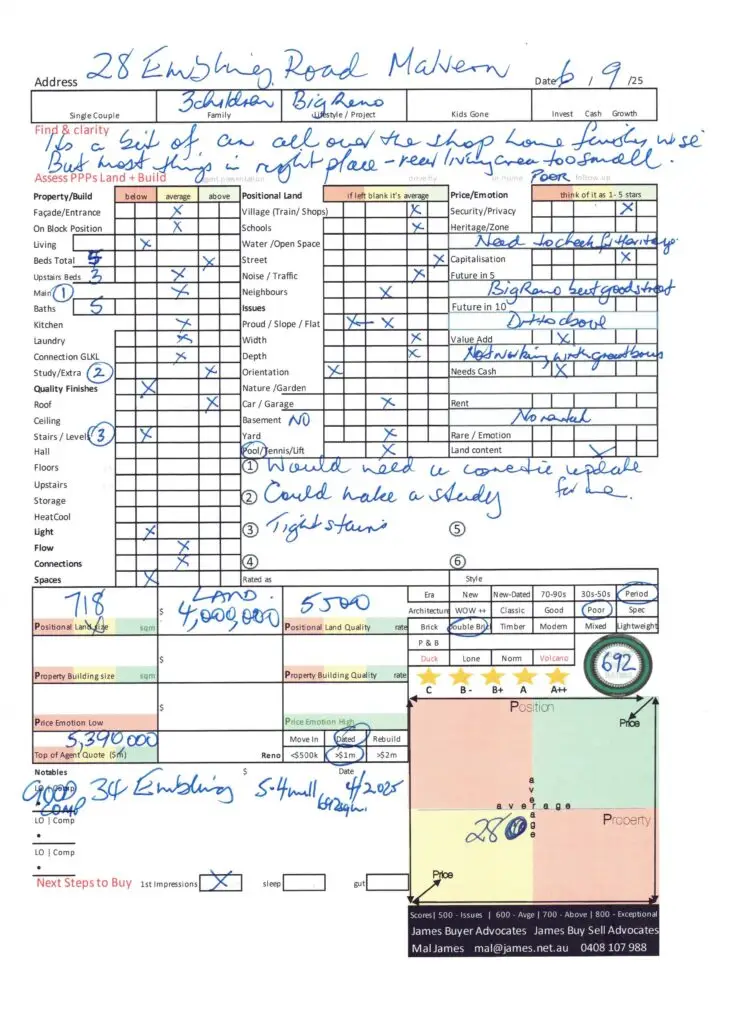 Address 28 Embling Road Malvern Date 6 / 9 /25
3 children Big Reno
Single Couple Family Lifestyle / Project Kids Gone Invest Cash Growth
Find & clarity
Its a bit of an all over the shop home finish wise
But most things in right place - rear living area too small.
Assess PPPs Land + Build POOR follow up
Property/Build below average above Positional Land if left blank it's average Price/Emotion think of it as 1- 5 stars
Façade/Entrance X Village (Train/ Shops) X Security/Privacy X
On Block Position X Schools X Heritage/Zone
Living X Water /Open Space Need to check for Heritage.
Beds Total 5 X Street X Capitalisation X
Upstairs Beds 3 X Noise / Traffic X Future in 5
Main 1 X Neighbours X Big Reno but good street
Baths 5 Issues Future in 10
Kitchen X Proud / Slope / Flat X X Ditto above
Laundry X Width X Value Add X
Connection GLKL X Depth X Not working with great bones
Study/Extra 2 X Orientation X Needs Cash X
Quality Finishes X Nature /Garden
Roof X Car / Garage X Rent
Ceiling Basement NO No rental
Stairs / Levels 3 X Yard X Rare / Emotion
Hall Pool/Tennis/Lift X Land content X
Floors 1 Would need a cosmetic update
for me.
Upstairs 2 Could make a study
Storage
HeatCool 3 Tight stairs 5
Light X
Flow X
Connections X 4 6
Spaces X Rated as Style
718 $ LAND. 4,000,000 5500
Positional Land size sqm Positional Land Quality rate
Era New New-Dated 70-90s 30s-50s Period
Architecture WOW ++ Classic Good Poor Spec
Brick Double Brick Timber Modern Mixed Lightweight
P & B
Duck Lone Norm Volcano
692
C B - B+ A A++
$
Property Building size sqm Property Building Quality rate
$
Price Emotion Low Price Emotion High
5,390,000 Move In Dated Rebuild
Top of Agent Quote ($m) Reno <$500k >$1m >$2m
Notables $ Date
GOOD COMP 34 Embling 5.4mill 692sqm. 4/2025
LO | Comp
LO | Comp
Next Steps to Buy 1st Impressions X sleep gut
Position
Price
average
average
Property
28
Price
Scores| 500 - Issues | 600 - Avge | 700 - Above | 800 - Exceptional
James Buyer Advocates James Buy Sell Advocates
Mal James mal@james.net.au 0408 107 988